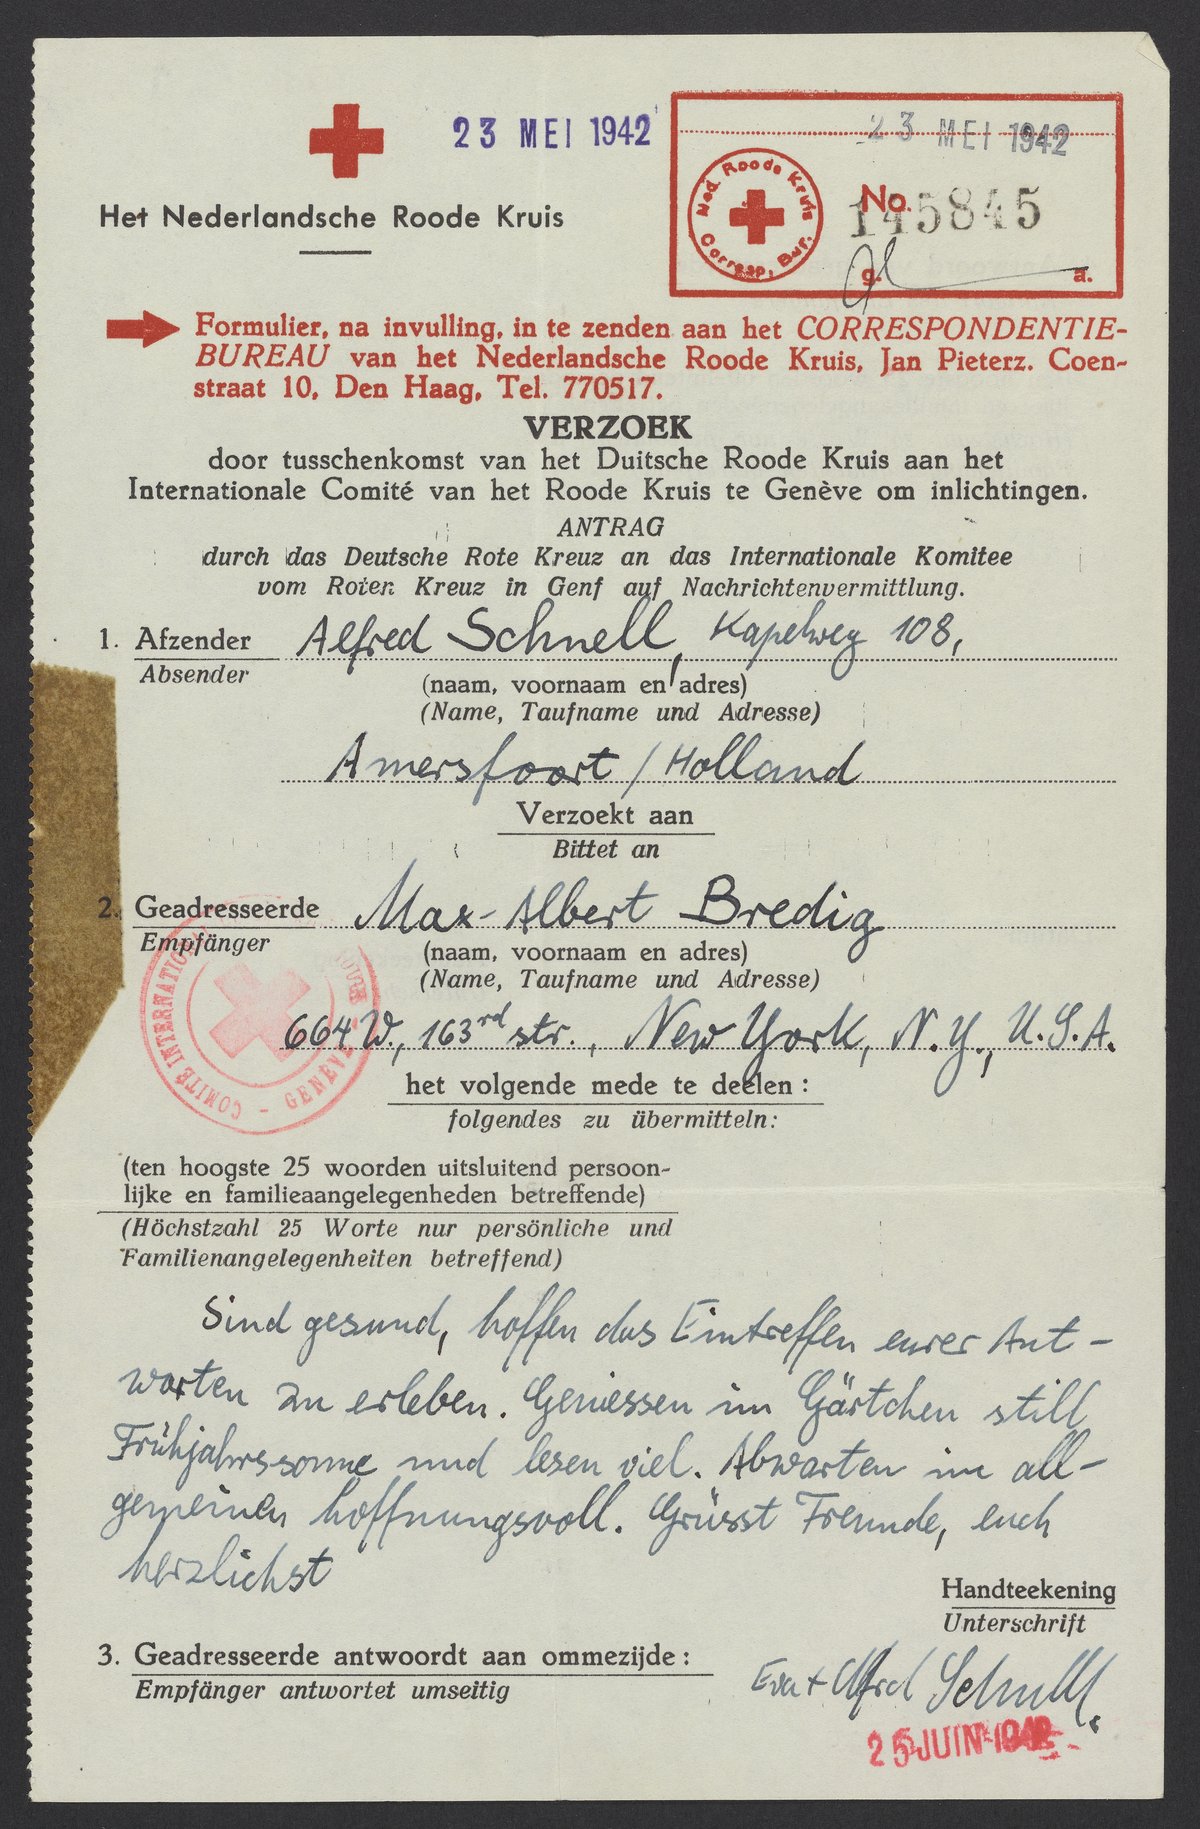 23 MEI 1942
23 MEI 1942
Ned. Roode Kruis
Corresp. Bur.
No.
145845
g. a.
Het Nederlandsche Roode Kruis
Formulier, na invulling, in te zenden aan het CORRESPONDENTIE-
BUREAU van het Nederlandsche Roode Kruis, Jan Pieterz. Coen-
straat 10, Den Haag, Tel. 770517.
VERZOEK
door tusschenkomst van het Duitsche Roode Kruis aan het
Internationale Comité van het Roode Kruis te Genève om inlichtingen.
ANTRAG
durch das Deutsche Rote Kreuz an das Internationale Komitee
vom Roten Kreuz in Genf auf Nachrichtenvermittlung.
1. Afzender Alfred Schnell, Kapelweg 108,
Absender
(naam, voornaam en adres)
(Name, Taufname und Adresse)
Amersfoort / Holland
Verzoekt aan
Bittet an
2. Geadresseerde Max-Albert Bredig
Empfänger
(naam, voornaam en adres)
(Name, Taufname und Adresse)
COMITÉ INTERNATIONAL GENÈVE
664 W., 163rd str., New York, N.Y., U.S.A.
het volgende mede te deelen:
folgendes zu übermitteln:
(ten hoogste 25 woorden uitsluitend persoon-
lijke en familieaangelegenheden betreffende)
(Höchstzahl 25 Worte nur persönliche und
Familienangelegenheiten betreffend)
Sind gesund, hoffen das Eintreffen eurer Ant-
worten zu erleben. Geniessen im Gärtchen still
Frühjahrssonne und lesen viel. Abwarten im all-
gemeinen hoffnungsvoll. Grüsst Freunde, euch
herzlichst
Handteekening
Unterschrift
3. Geadresseerde antwoordt aan ommezijde:
Empfänger antwortet umseitig
Eva + Alfred Schnell.
25 JUIN 1942